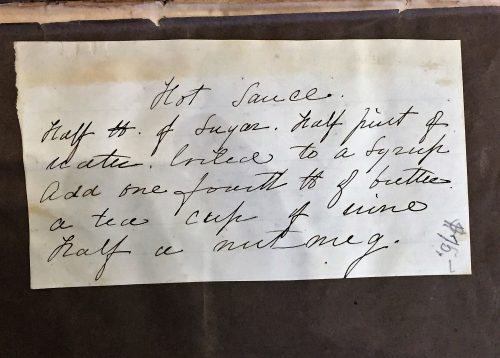 Hot Sauce.
Half ℔. of Sugar. Half pint of
water. boiled to a Syrup
Add one fourth ℔ of butter.
a tea cup of wine
Half a nutmeg.